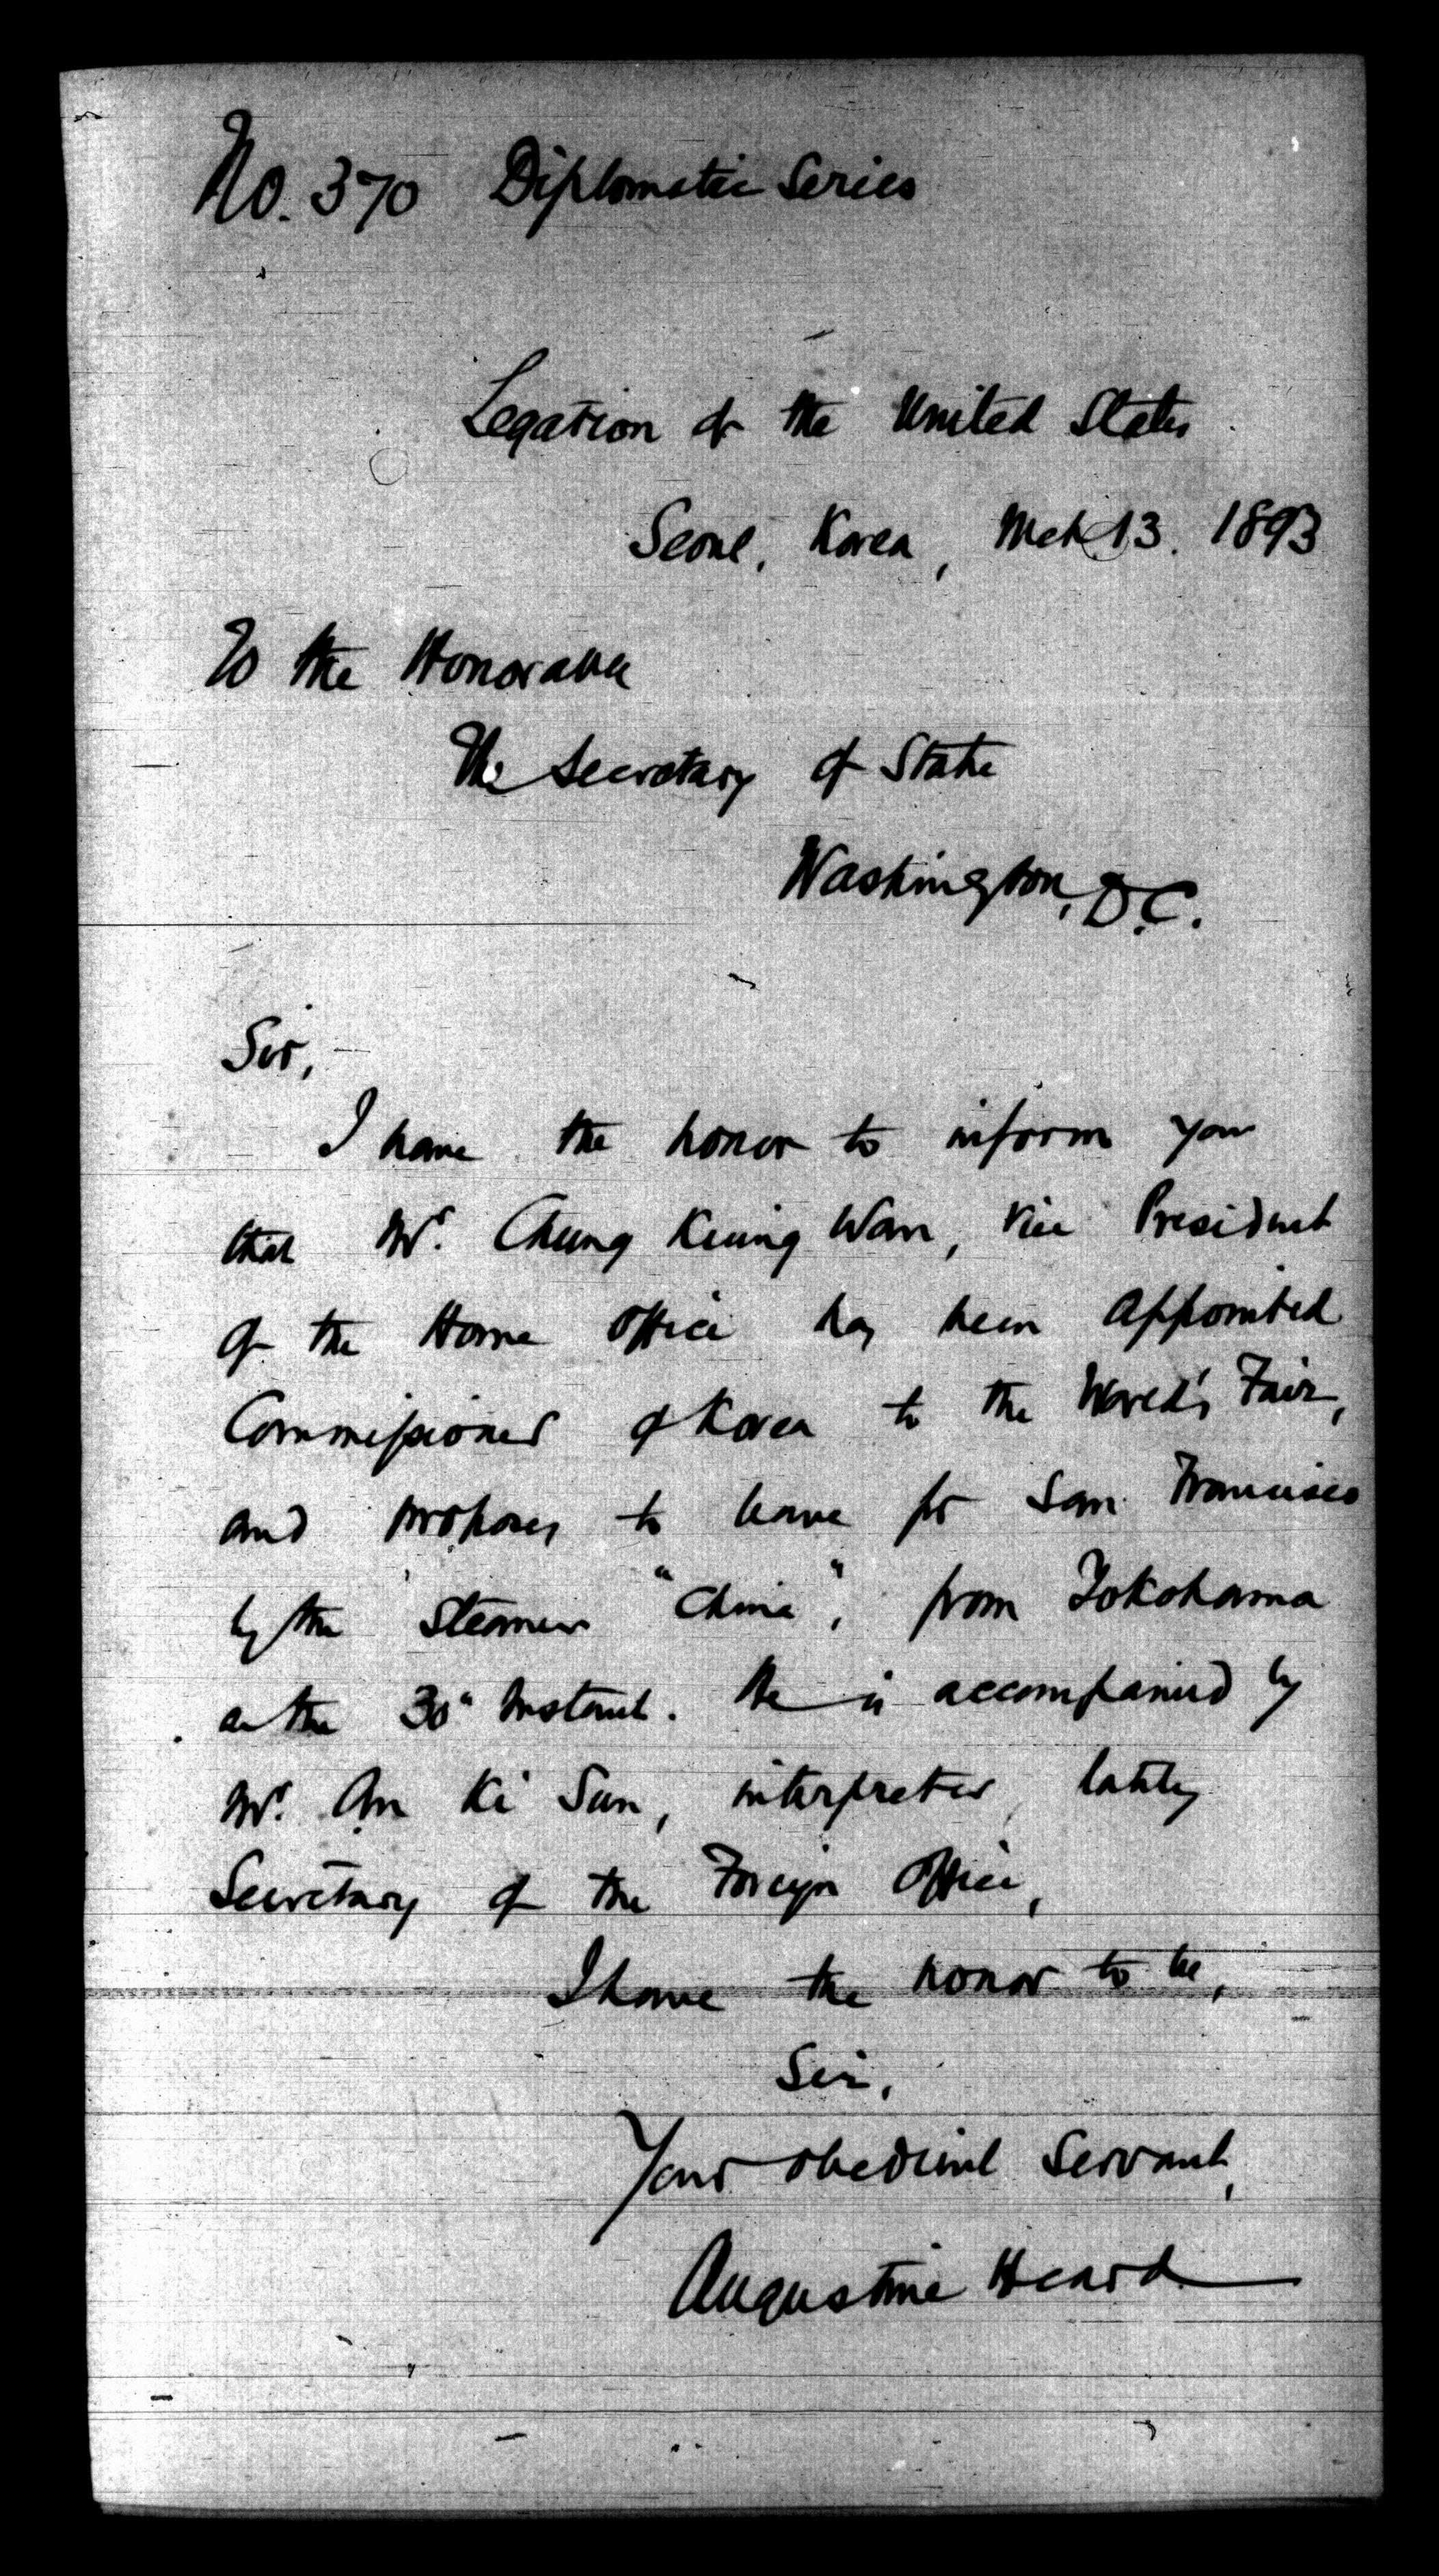 No. 370 Diplomatic Series
Legation of the United States
Seoul, Korea, Mch 13. 1893
To the Honorable
The Secretary of State
Washington, D.C.
Sir,
I have the honor to inform you
that Mr. Chung Keung Wan, Vice President
of the Home Office has been appointed
Commissioner of Korea to the World's Fair,
and proposes to leave for San Francisco
by the Steamer "China", from Yokohama
on the 30" Instant. He is accompanied by
Mr. An Ki Sun, interpreter, lately
Secretary of the Foreign Office,
I have the honor to be,
Sir,
Your obedient Servant,
Augustine Heard